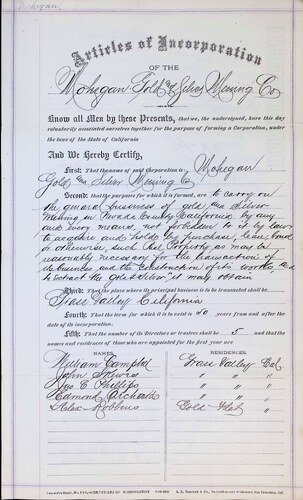 Mohegan
Articles of Incorporation
OF THE
Mohegan Gold & Silver Mining Co
Know all Men by these Presents, that we, the undersigned, have this day
voluntarily associated ourselves together for the purpose of forming a Corporation, under
the laws of the State of California
And We Hereby Certify,
First: That the name of said Corporation is Mohegan
Gold and Silver Mining Co
Second: that the purposes for which it is formed, are to carry on
the general business of gold and silver
Mining in Nevada County California by any
and every means, not forbidden to it by law
to acquire and hold by purchase, lease, bond
or otherwise such Real Property as may be
reasonably necessary for the transaction of
its business and the construction of its works, and
to extract the gold & silver it may obtain
Third: That the place where its principal business is to be transacted shall be
Grass Valley California
Fourth: That the term for which it is to exist is 50 years from and after the
date of its incorporation.
Fifth: That the number of its Directors or trustees shall be 5 and that the
names and residences of those who are appointed for the first year are
NAMES. RESIDENCES.
William Campbell Grass Valley Cal
John " "
Jas C Phillips " "
Edmond " "
Alex Robbins Gold Flat "